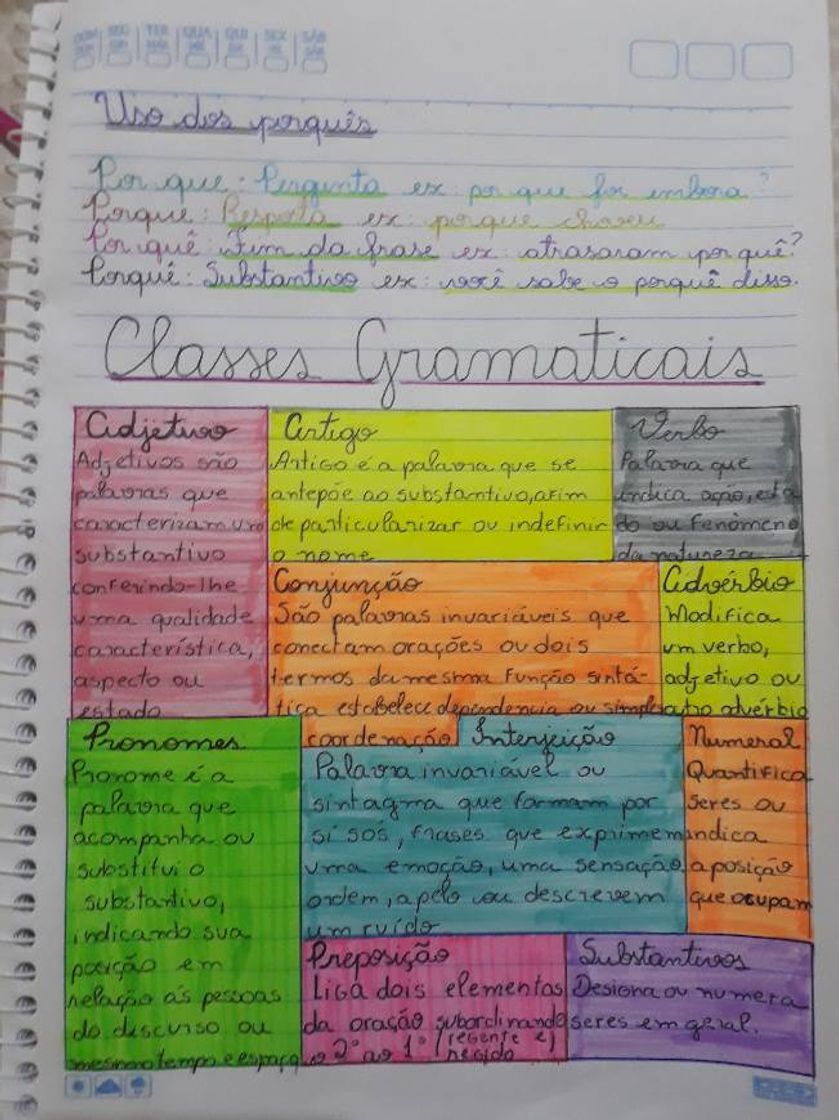 DOM SEG TER QUA QUI SEX SÁB
Uso dos porquês
Por que: Pergunta ex: por que foi embora?
Porque: Resposta ex: porque choveu
Por quê: Fim da frase ex: atrasaram por quê?
Porquê: Substantivo ex: você sabe o porquê disso.
Classes Gramaticais
Adjetivo
Adjetivos são
palavras que
caracterizam um
substantivo
conferindo-lhe
uma qualidade
característica,
aspecto ou
estado
Artigo
Artigo é a palavra que se
antepõe ao substantivo, afim
de particularizar ou indefinir
o nome
Verbo
Palavra que
indica ação, esta
do ou fenômeno
da natureza
Conjunção
São palavras invariáveis que
conectam orações ou dois
termos da mesma função sintá-
tica estabelece dependencia ou simples
coordenação
Advérbio
Modifica
um verbo,
adjetivo ou
outro advérbio
Pronomes
Pronome é a
palavra que
acompanha ou
substitui o
substantivo,
indicando sua
posição em
relação ás pessoas
do discurso ou
mesmo tempo e espaço
Interjeição
Palavra invariável ou
sintagma que formam por
si sós, frases que exprimem
uma emoção, uma sensação
ordem, apelo ou descrevem
um ruído
Numeral
Quantifica
seres ou
indica
a posição
que ocupam
Preposição
Liga dois elementos
da oração subordinando
o 2º ao 1º (regente e)
regido
Substantivos
Designa ou numera
seres em geral.